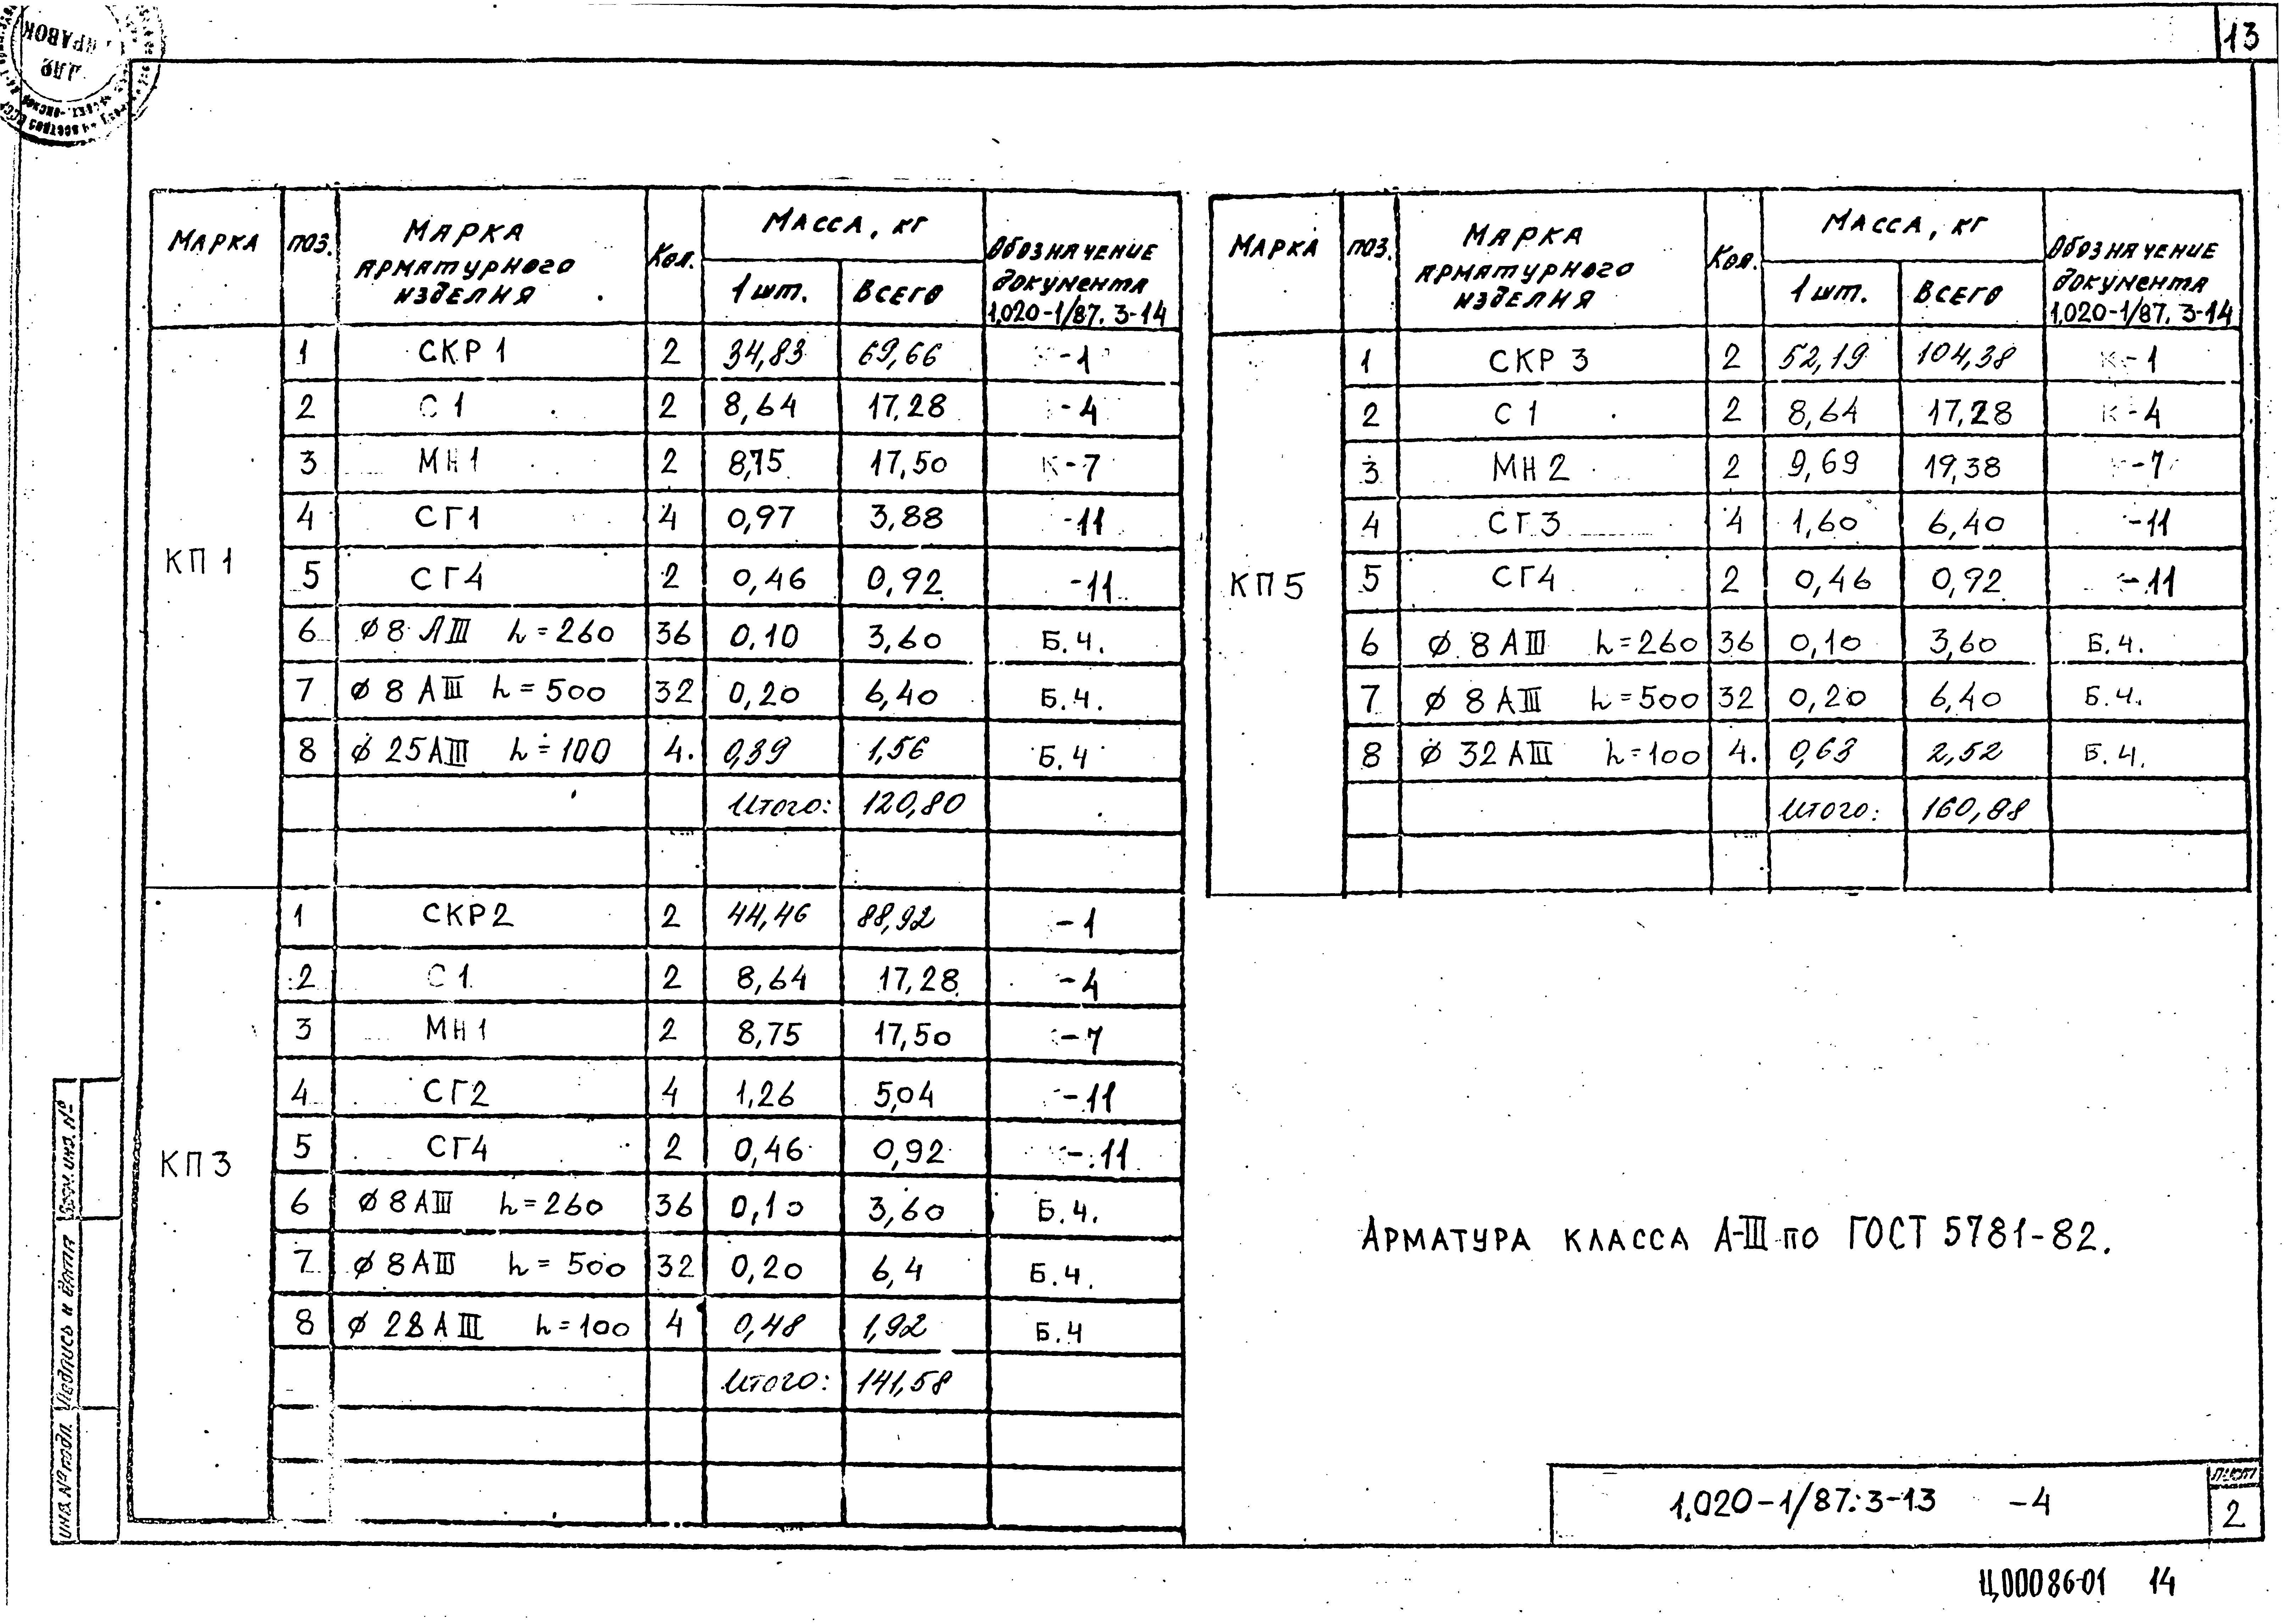 13
МАРКА ПОЗ. МАРКА АРМАТУРНОГО ИЗДЕЛИЯ Кол. МАССА, кг 1 шт. ВСЕГО Обозначение документа 1.020-1/87. 3-14
КП 1
1 СКР 1 2 34,83 69,66 -1
2 С 1 2 8,64 17,28 -4
3 МН 1 2 8,75 17,50 К-7
4 СГ1 4 0,97 3,88 -11
5 СГ4 2 0,46 0,92 -11
6 ϕ8 АIII L=260 36 0,10 3,60 Б.Ч.
7 ϕ 8 АIII L=500 32 0,20 6,40 Б.Ч.
8 ϕ 25АIII L=100 4. 0,39 1,56 Б.Ч
Итого: 120,80
КП 3
1 СКР2 2 44,46 88,92 -1
2 С 1 2 8,64 17,28 -4
3 МН 1 2 8,75 17,50 -7
4 СГ2 4 1,26 5,04 -11
5 СГ4 2 0,46 0,92 -11
6 ϕ 8АIII L=260 36 0,10 3,60 Б.Ч.
7 ϕ 8АIII L=500 32 0,20 6,4 Б.Ч.
8 ϕ 28 АIII L=100 4 0,48 1,92 Б.Ч
Итого: 141,58
МАРКА ПОЗ. МАРКА АРМАТУРНОГО ИЗДЕЛИЯ Кол. МАССА, кг 1 шт. ВСЕГО Обозначение документа 1.020-1/87. 3-14
КП 5
1 СКР 3 2 52,19 104,38 К-1
2 С 1 2 8,64 17,28 К-4
3 МН 2 2 9,69 19,38 -7
4 СГ 3 4 1,60 6,40 -11
5 СГ4 2 0,46 0,92 -11
6 ϕ 8 АIII L=260 36 0,10 3,60 Б.Ч.
7 ϕ 8 АIII L=500 32 0,20 6,40 Б.Ч.
8 ϕ 32 АIII L=100 4. 0,63 2,52 Б.Ч.
Итого: 160,88
АРМАТУРА КЛАССА А-III ПО ГОСТ 5781-82.
1.020-1/87.3-13 -4
ЛИСТ
2
Ц00086-01 14
ИНВ. № подл. Подпись и дата Взам. инв. №
ДЛЯ